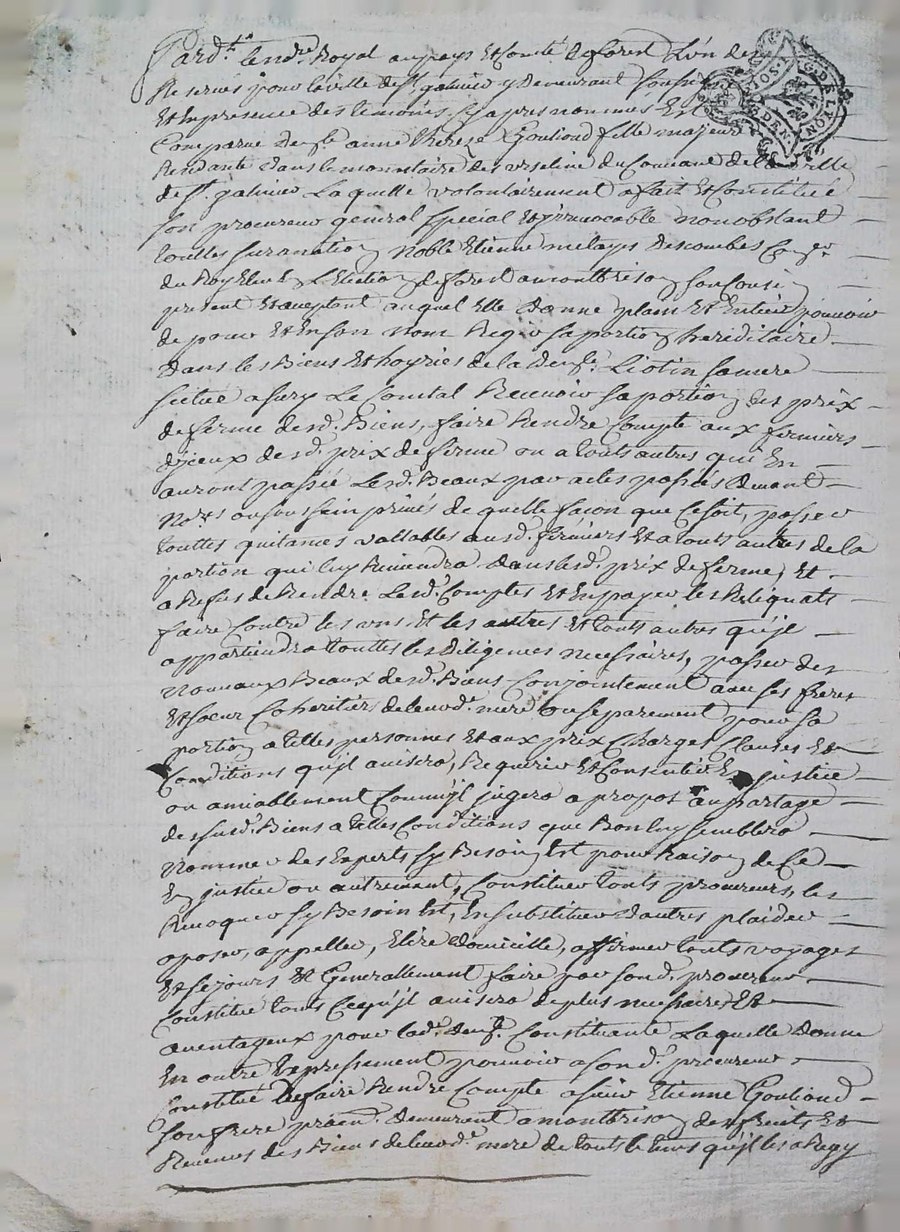 Pard.t le no.re Royal au pays Et Comté de forest L'un des
Reservés pour la ville de S.t galmier y demeurant soussi
Et En presence des temoins cy apres nommes Est
Comparüe De.lle anne therese Goulioud fille majeure
Rendante dans le monnastaire des urseline du Couvant de la ville
de S.t galmier Laquelle volontairement a fait Et Constitué
son procureur general special Et irrevocable nonobstant
touttes surannation Noble Etienne metayer Descombes Con.er
du Roy En L'Election de forest a montbrison son cousin
present Et aceptant auquel Elle donne plain Et Entier pouvoir
de pour Et En son Nom Regir sa portion hereditaire
dans les Biens Et hoyries de la De.lle Liotin sa mere
scitué a sury Le Comtal Recevoir sa portion des prix
de ferme desd. Biens, faire Rendre Compte aux fermiers
d'jceux desd. prix de ferme ou a touts autres qui En
auront passée Lesd. Beaux par actes passés devant
No.res ou sous sein privés de quelle façon que ce soit, passer
touttes quitances vallables ausd. fermiers Et a touts autres de la
portion qui luy Reviendra dans lesd. prix de ferme, Et
a Refus de Rendre Lesd. Comptes Et En payer les Reliquats
faire Contre les uns Et les autres Et touts autres qu'jl
appartiendra touttes les diligences necessaires, passer des
Nouveaux Beaux desd. Biens Conjointement avec ses freres
Et soeur Coheritiers de leurd. mere ou separement pour sa
portion a telles personnes Et aux prix Charges Clauses Et
Conditions qu'jl avisera, Requerir Et Consentir En justice
ou amiablement Comm'jl jugera a propos au partage
des susd. Biens a telles Conditions que Bon luy semblera
Nommer des Experts sy Besoin Est pour Raison de Ce
En justice ou autrement, Constituer touts procureurs, les
Revoquer sy Besoin Est, En substituer d'autres plaider
oposer, appeller, Elire domicille, affirmer touts voyages
Et sejours Et Generallement faire par sond. procureur
Constitué tout Ce qu'jl avisera de plus necessaire Et
aventageux pour lad. De.lle Constituante Laquelle donne
En outre Expressement pouvoir a sond. procureur
Constitué de faire Rendre Compte a sieur Etienne Goulioud
son frere demeurent a montbrison des fruits Et
Revenus des Biens de leurd. mere de touts le tems qu'jl les a Regy
G. D. LYON